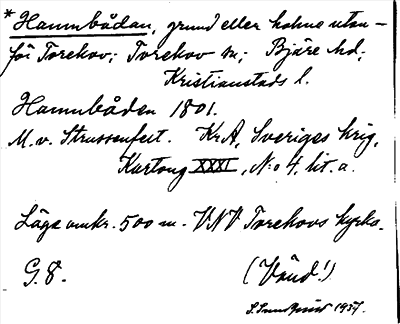 * Hamnbådan, grund eller holme utan-
för Torekov; Torekov sn; Bjäre hd;
Kristianstads l.
Hamnbåden 1801.
M. v. Strussenfelt. KrA, Sveriges krig,
Kartong XXXI, N:o 4, lit. a.
Läge omkr. 500 m. VNV Torekovs kyrka.
G. 8. (Vänd!)
S. Sundquist 1937.